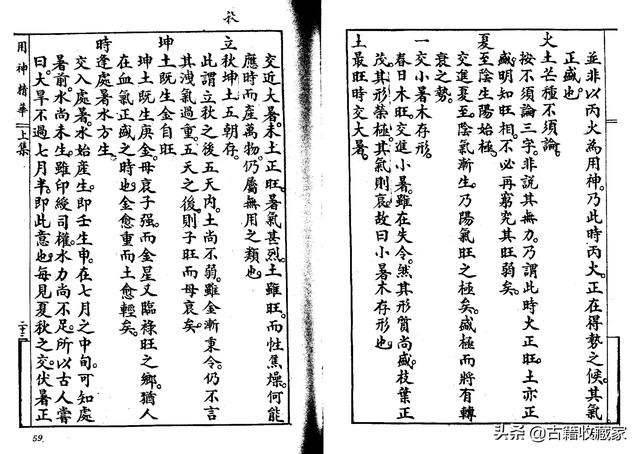 並非以丙火為用神。乃此時丙火。正在得勢之候。其氣
正盛也。
火土芒種不須論。
按不須論三字。非說其無力。乃謂此時火正旺。土亦正
盛。明知旺相。不必再窮究其旺弱矣。
夏至陰生陽始極。
交進夏至。陰氣漸生。乃陽氣旺之極矣。盛極而將有轉
衰之勢。
一交小暑木存形。
春日木旺。交進小暑。雖在失令。然其形質尚盛。枝葉正
茂。其形榮極。其氣則衰。故曰小暑木存形也。
土最旺時交大暑。
交近大暑。未土正旺。暑氣甚烈。土雖旺。而性焦燥。何能
應時而產萬物。仍屬無用之類也。
立秋坤土五朝存。
此謂立秋之後五天內。土尚不弱。雖金漸東令。仍不言
其洩氣過重。五天之後。則子旺而母衰矣。
坤土既生金自旺
坤土既生庚金。母衰子强。而金星又臨祿旺之鄉。猶人
在血氣正盛之時也。金愈重而土愈輕矣。
時逢處暑水方生。
交入處暑。水始產生。即壬生申。在七月之中旬。可知處
暑前。水尚未生。雖印綬司權。水力尚不足。所以古人嘗
曰。大旱不過七月半。即此意也。每見夏秋之交。伏暑正
用神精華 上集
二十三
59.
头条 @古籍收藏家